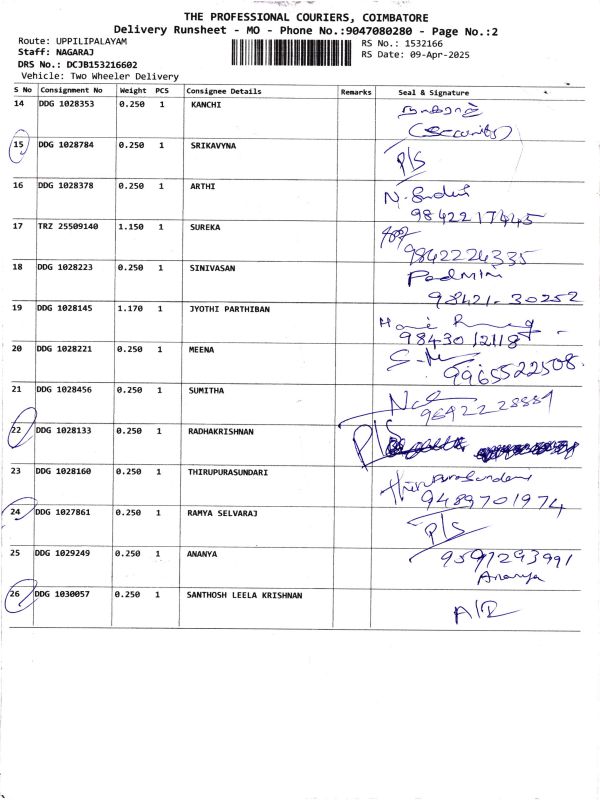 THE PROFESSIONAL COURIERS, COIMBATORE
Delivery Runsheet - MO - Phone No.:9047080280 - Page No.:2
Route: UPPILIPALAYAM
RS No.: 1532166
Staff: NAGARAJ
RS Date: 09-Apr-2025
DRS No.: DCJB153216602
Vehicle: Two Wheeler Delivery
S No Consignment No Weight PCS Consignee Details Remarks Seal & Signature
14 DDG 1028353 0.250 1 KANCHI
(Security)
15 DDG 1028784 0.250 1 SRIKAVYNA P/S
16 DDG 1028378 0.250 1 ARTHI
9842217445
17 TRZ 25509140 1.150 1 SUREKA
9842224335
18 DDG 1028223 0.250 1 SINIVASAN Padmini
98421-30252
19 DDG 1028145 1.170 1 JYOTHI PARTHIBAN
20 DDG 1028221 0.250 1 MEENA
9965522508
21 DDG 1028456 0.250 1 SUMITHA
22 DDG 1028133 0.250 1 RADHAKRISHNAN P/S
23 DDG 1028160 0.250 1 THIRUPURASUNDARI Thirupurasundari
9489701974
24 DDG 1027861 0.250 1 RAMYA SELVARAJ P/S
25 DDG 1029249 0.250 1 ANANYA 9591293991
Ananya
26 DDG 1030057 0.250 1 SANTHOSH LEELA KRISHNAN A/R